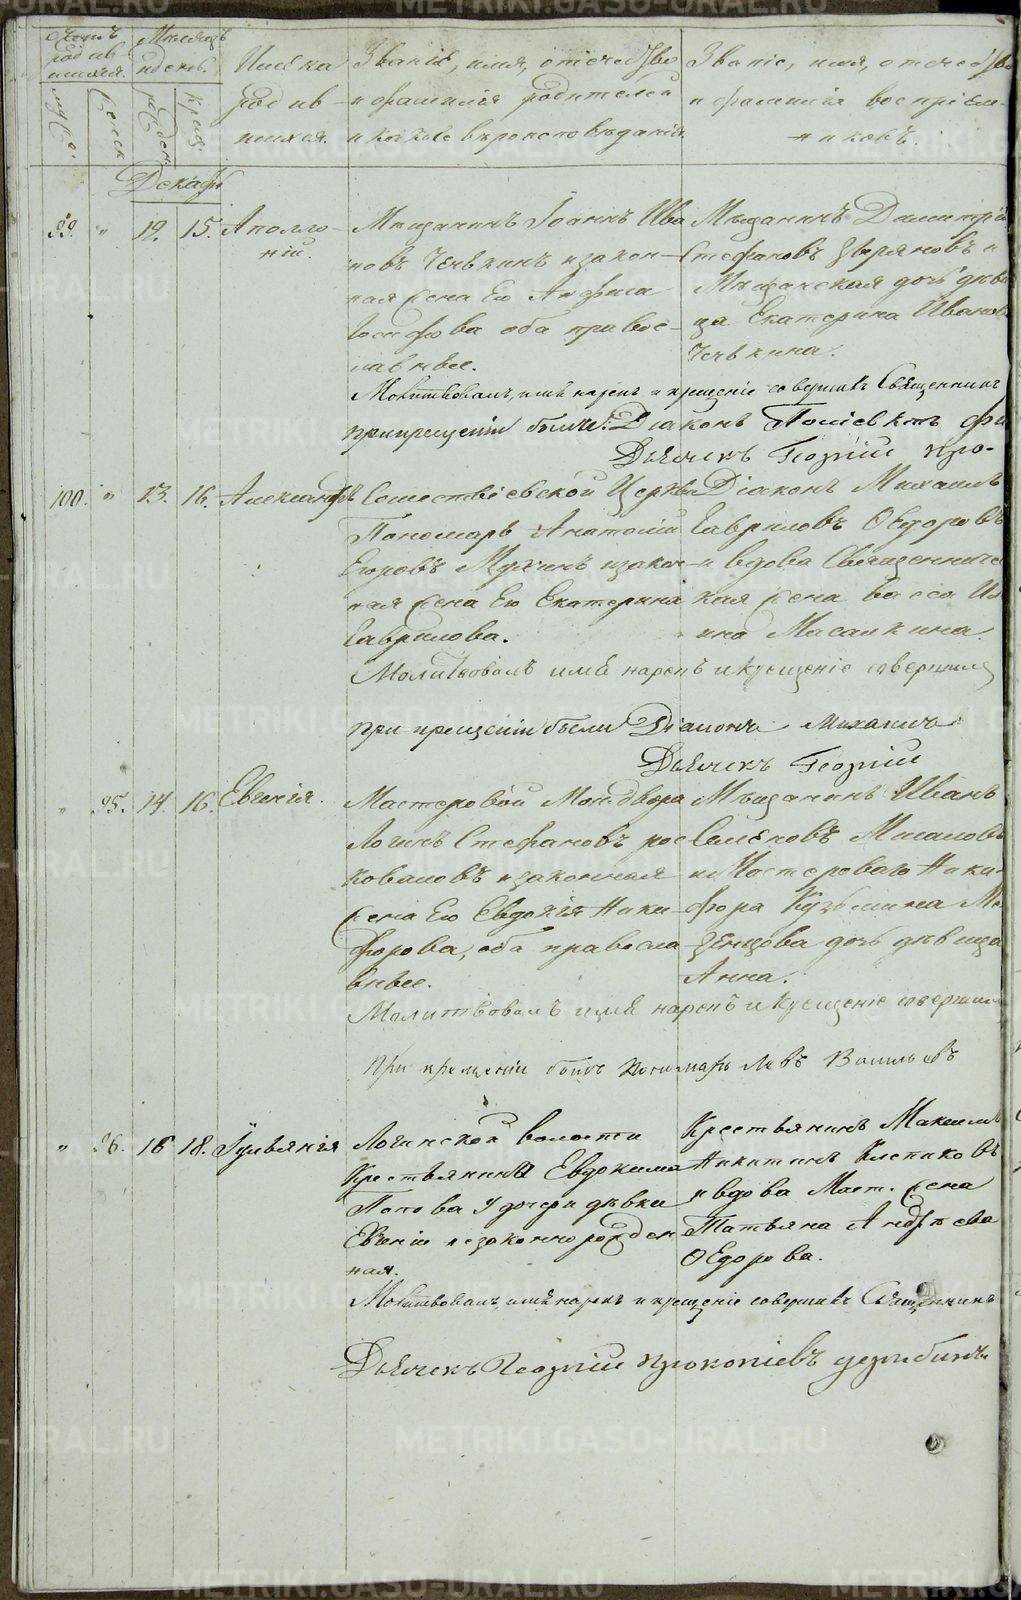 Счетъ родившихся.
Мѣсяцъ и день.
Имена родившихся.
Званіе, имя, отечество и фамилія родителей и какого вѣроисповѣданія.
Званіе, имя, отечество и фамилія воспріемниковъ.
муже:
женск
рожден:
крещ:
Декабр
99. " 12. 15. Аполло-
ній.
Мѣщанинъ Іоаннъ Ива
новъ Чевкинъ и закон-
ная жена его Анфиса
Іосифова оба правос-
лавные.
Мѣщанинъ Димитрій
Стефановъ Зыряновъ и
Мѣщанская дочь дѣви
ца Екатерина Иванов
Чевкина.
Молитвовалъ, имя нарекъ и крещеніе совершилъ Священникъ
При крещеніи были: Діаконъ
Дьячекъ Георгій Про-
100. " 13. 16. Александръ
Сошествіевской Церкви
Пономарь Анатолій
Егоровъ Мухинъ и закон-
ная жена его Екатерина
Гаврилова.
Діаконъ Михаилъ
Гавриловъ Ѳедоровъ
и вдова Священниче
ская жена Васса Ил
ина Масалкина.
Молитвовалъ имя нарекъ и крещеніе совершилъ
При крещеніи были Діаконъ Михаилъ
Дьячекъ Георгій
" 95. 14. 16. Евгенія.
Мастеровой Мон. двора
Логинъ Стефановъ рос
коваловъ и законная
жена его Евдокія Ники-
форова, оба правосла
вные.
Мѣщанинъ Иванъ
Семеновъ
и Мастероваго Ники-
фора Кузьмина Ме
дочь дѣвица
Анна.
Молитвовалъ имя нарекъ и крещеніе совершилъ
При крещеніи былъ Пономарь Левъ Васильевъ
" 96. 16 18. Іульянія
Логинской волости
Крестьянина Евдокима
Попова у дочери дѣвки
Евгеніи незаконнорожден
ная.
Крестьянинъ Максимъ
Никитинъ Клепиковъ
и вдова Маст. жена
Татьяна Андрѣева
Ѳедорова.
Молитвовалъ, имя нарекъ и крещеніе совершилъ Священникъ
Дьячекъ Георгій Прокопіевъ
METRIKI.GASO-URAL.RU